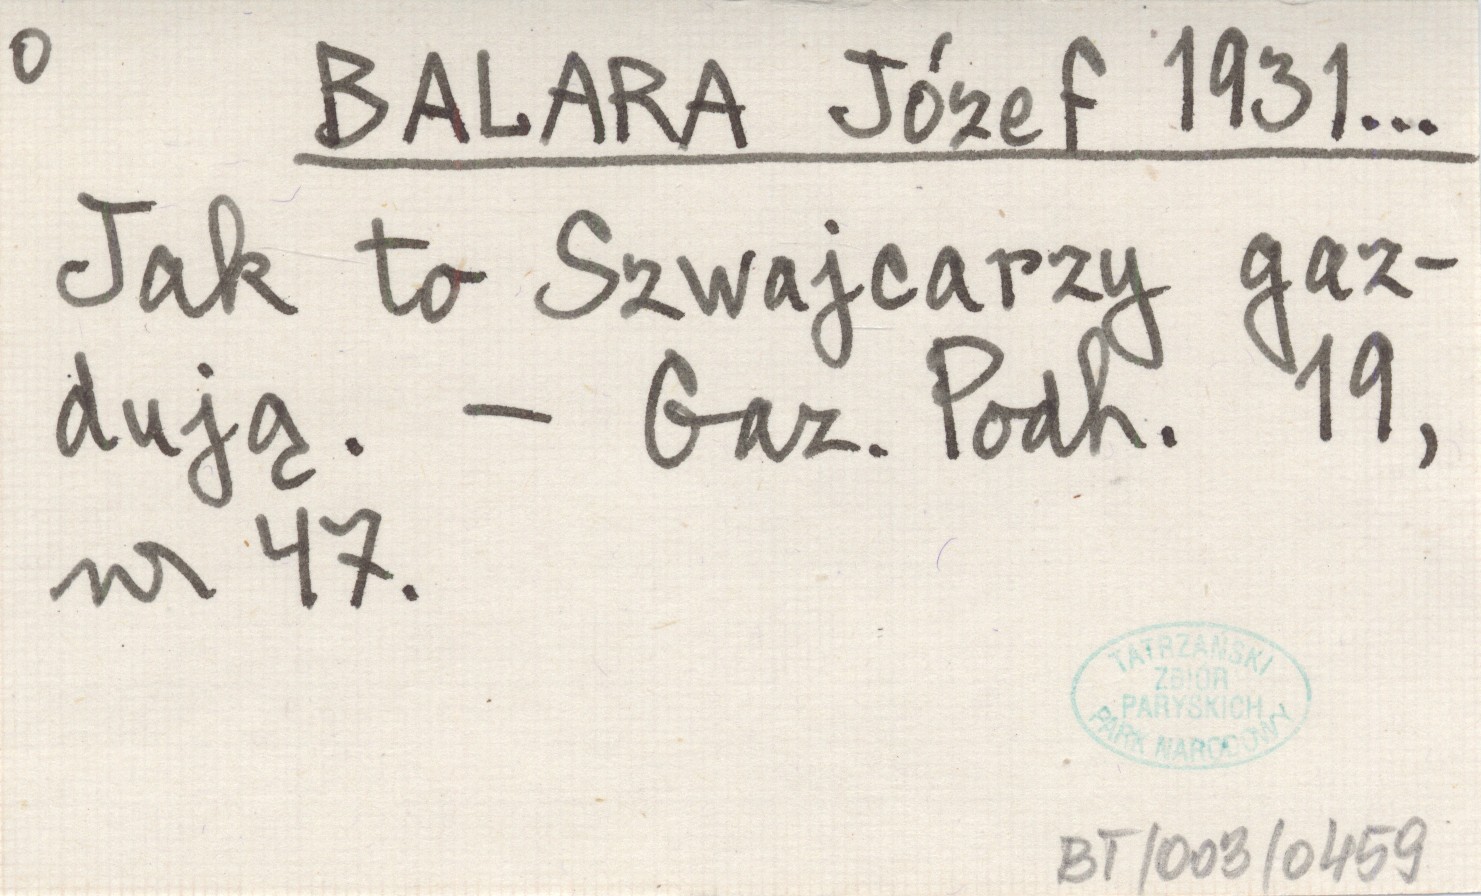 o
BALARA Józef 1931...
Jak to Szwajcarzy gaz-
dują. – Gaz. Podh. 19,
nr 47.
TATRZAŃSKI
ZBIÓR
PARYSKICH
PARK NARODOWY
BT/003/0459